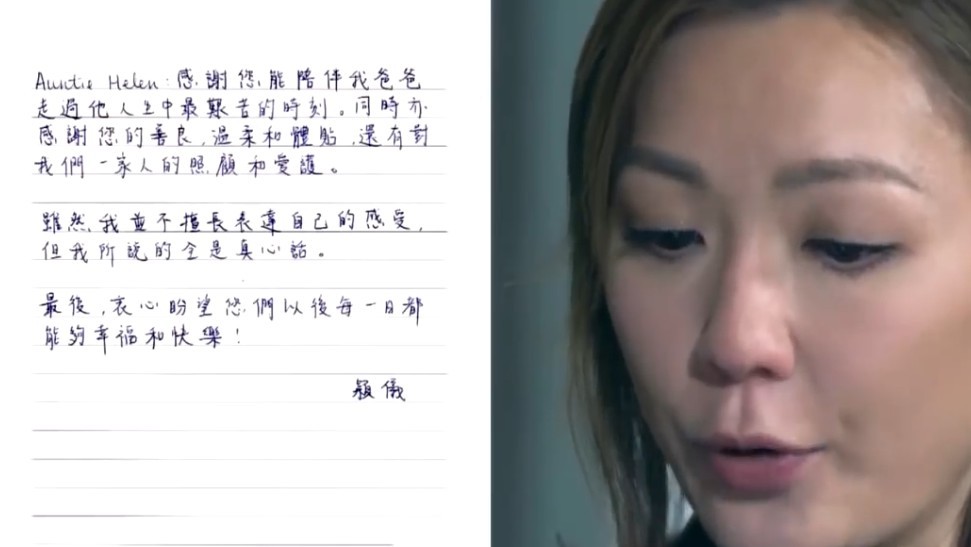 Auntie Helen：感謝您能陪伴我爸爸
走過他人生中最艱苦的時刻。同時亦
感謝您的善良，溫柔和體貼，還有對
我們一家人的照顧和愛護。
雖然我並不擅長表達自己的感受，
但我所說的全是真心話。
最後，衷心盼望您們以後每一日都
能夠幸福和快樂！
穎儀